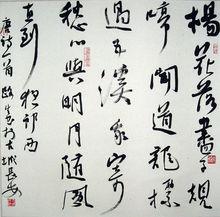 楊花落盡子規
啼聞道龍標
過五溪我寄
愁心與明月隨風
直到夜郎西
唐詩一首 於古城長安